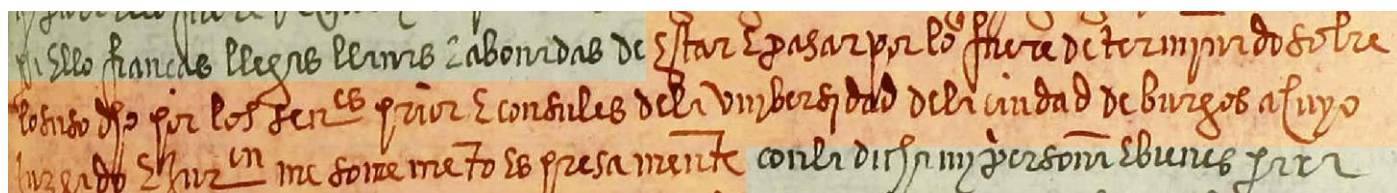 p[ar]a ello francas llegas llanas e abonadas de estar e pasar por lo q fuere determynado sobre
lo suso dho por los senes prior e consules de la unybersydad de la ciudad de burgos a cuyo
juzgado e jurin me someto espresamente con la dicha my persona e bienes para